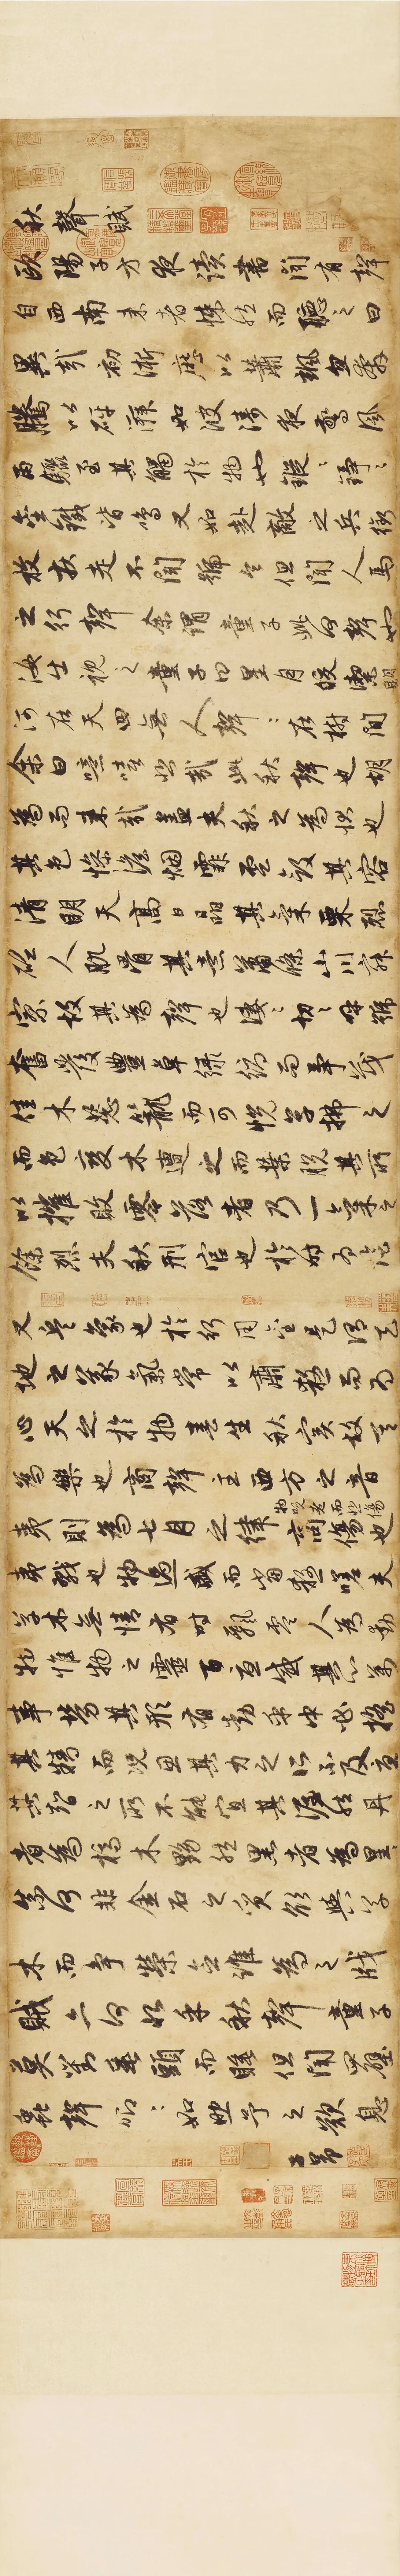 秋聲賦
歐陽子方夜讀書聞有聲
自西南来者悚然而聽之曰
異哉初淅瀝以蕭颯忽奔
騰以砰湃如波濤夜驚風
雨驟至其觸於物也鏦〻錚〻
金鐵皆鳴又如赴敵之兵銜
枚疾走不聞號令但聞人馬
之行聲余謂童子此何聲也
汝出視之童子曰星月皎潔明
河在天四無人聲〻在樹間
余曰噫嘻悲哉此秋聲也胡
為而来哉蓋夫秋之為狀也
其色慘澹烟霏雲斂其容
清明天高日晶其氣栗烈
砭人肌骨其意蕭條山川寂
寥故其為聲也凄〻切〻呼號
奮發豐草綠縟而爭茂
佳木葱籠而可悦草拂之
而色變木遭之而葉脱其所
以摧敗零落者乃一氣之
餘烈夫秋刑官也於時為陰
又兵象也於行用金是謂天
地之義氣常以肅殺而為
心天之於物春生秋實故其
為樂也商聲主西方之音
夷則為七月之律商傷也
物既老而悲傷
夷戮也物過盛而當殺嗟夫
草木無情有時飄零人為動
物惟物之靈百憂感其心萬
事勞其形有動乎中必搖
其精而況思其力之所不及憂
其智之所不能宜其渥然丹
者為槁木黟然黑者為星
星奈何非金石之質欲與草
木而爭榮念誰為之戕
賊亦何恨乎秋聲童子
莫對垂頭而睡但聞四壁
蟲聲唧〻如助予之歎息
子昂